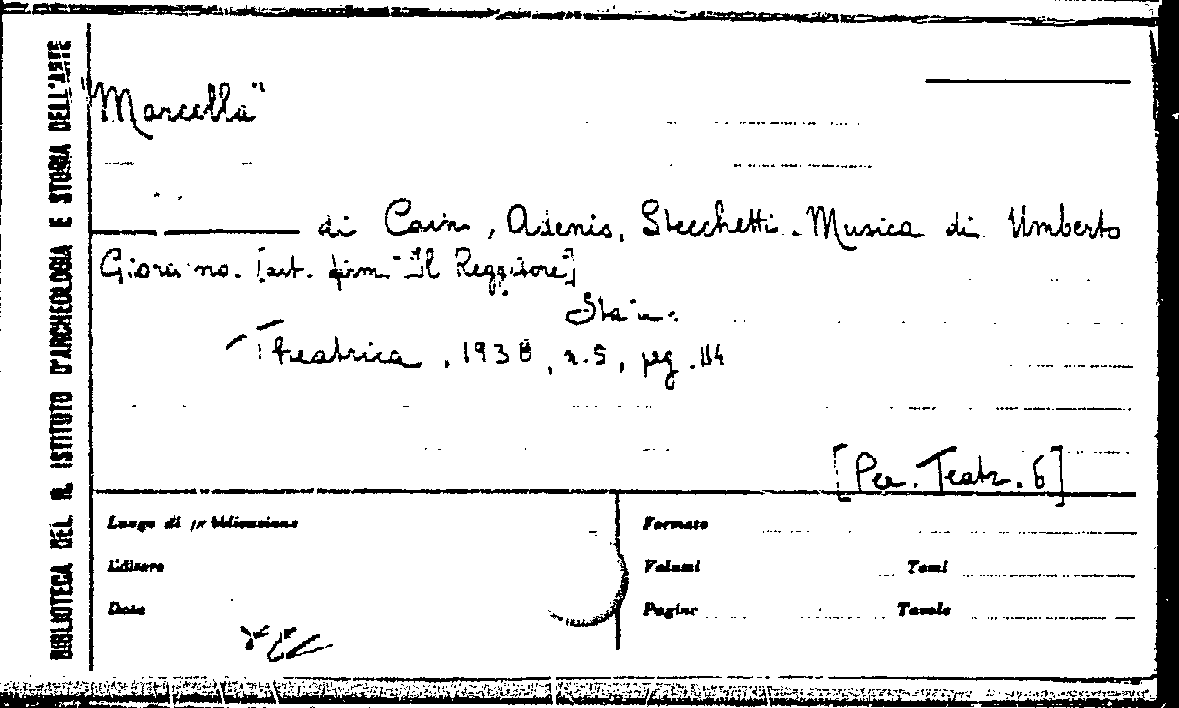 BIBLIOTECA DEL R. ISTITUTO D'ARCHEOLOGIA E STORIA DELL'ARTE
"Marcella"
di Cain, Adenis, Stecchetti. Musica di Umberto
Giordano. [art. firm. "Il Reggitore"]
Theatrica, 1938, n.5, pag. 114
[Per. Teatr. 6]
Luogo di pubblicazione
Editore
Data
Formato
Volumi Tomi
Pagine Tavole